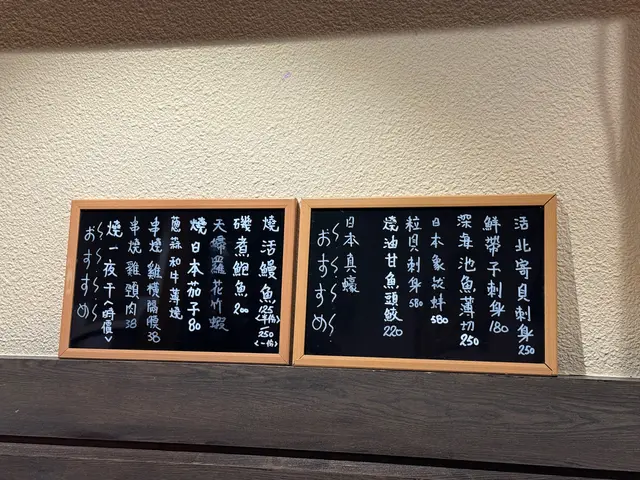 燒活鰻魚 125<半份> 250<一份>
磯煮鮑魚 200
天婦羅花竹蝦
燒日本茄子 80
蔥蒜和牛薄燒
串燒雞橫隔膜 38
串燒雞頸肉 38
燒一夜干<時價>
おすすめ
活北寄貝刺身 250
鮮帶子刺身 180
深海池魚薄切 250
日本象拔蚌 680
粒貝刺身 580
燒油甘魚頭鮫 220
日本真蠔
おすすめ